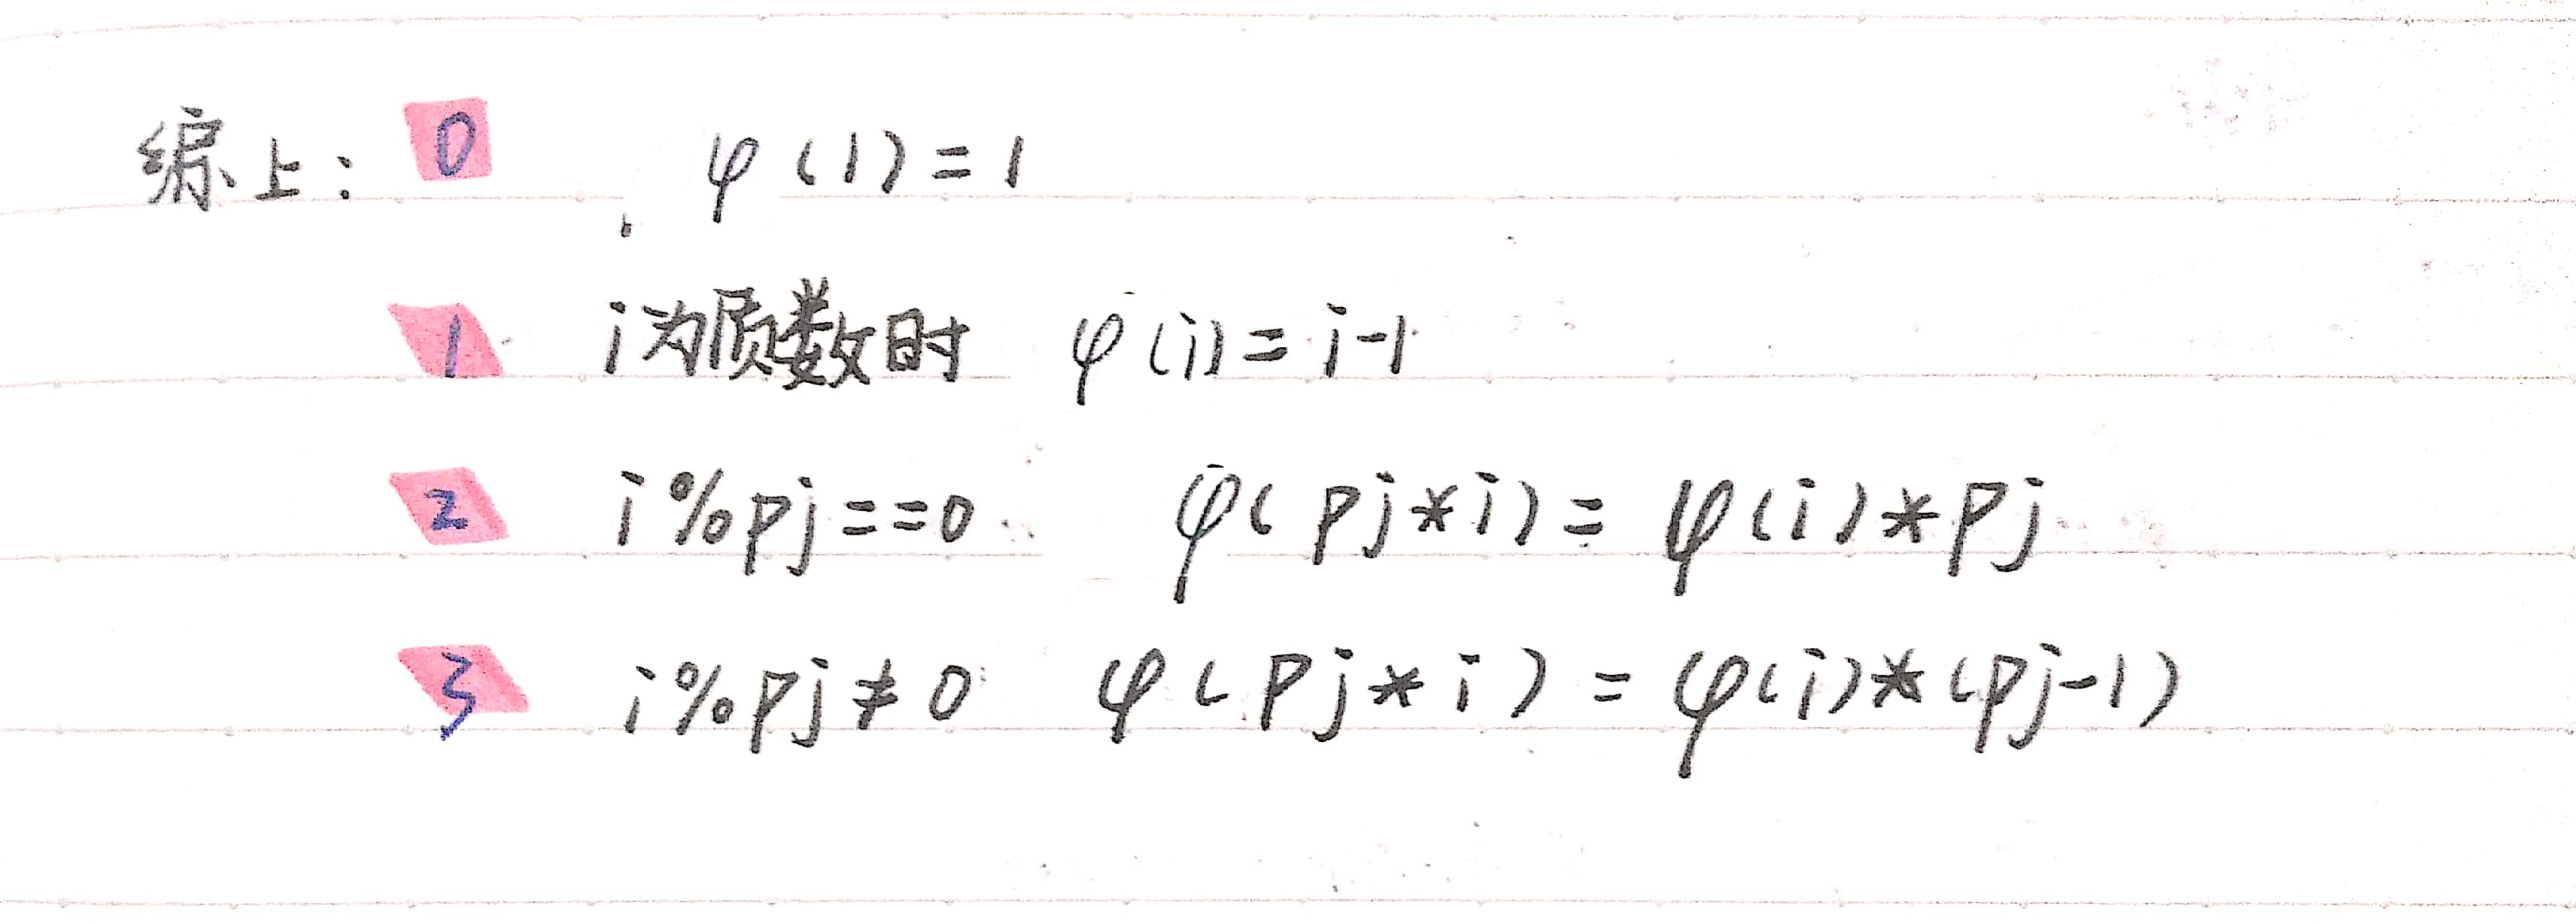 综上: 0 φ(1)=1
1 i为质数时 φ(i)=i-1
2 i%pj==0 φ(pj*i)=φ(i)*pj
3 i%pj≠0 φ(pj*i)=φ(i)*(pj-1)